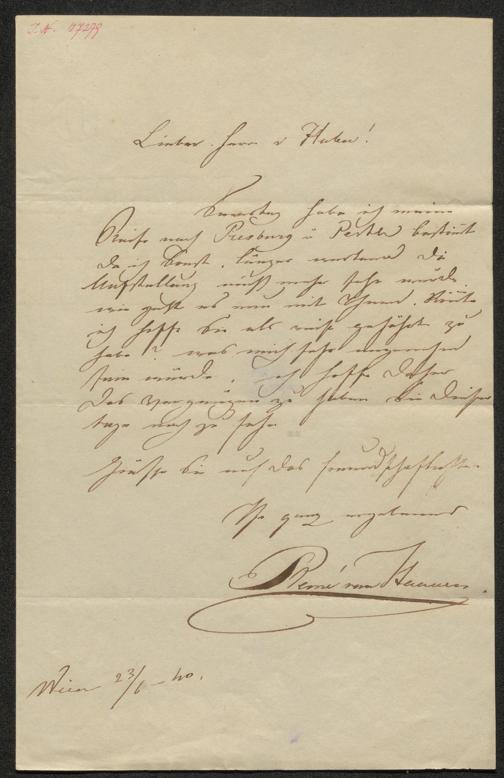 I. N. 47279
Lieber Herr v
habe ich meine
Reise nach Presburg u Pesth bestimt
da ich sonst länger
Aufstellung nicht mehr sehr würde
wie geht es nun mit Ihnen
ich hoffe Sie als
habe? was mich sehr angenehm
sein würde, ich hoffe daher
das vergnügen zu haben Sie dieser
tage noch zu sehn
Grüße Sie auf das freundschaftlichste
Ihr ganz ergebener
Remi van Haanen
Wien 23/6 - 40.